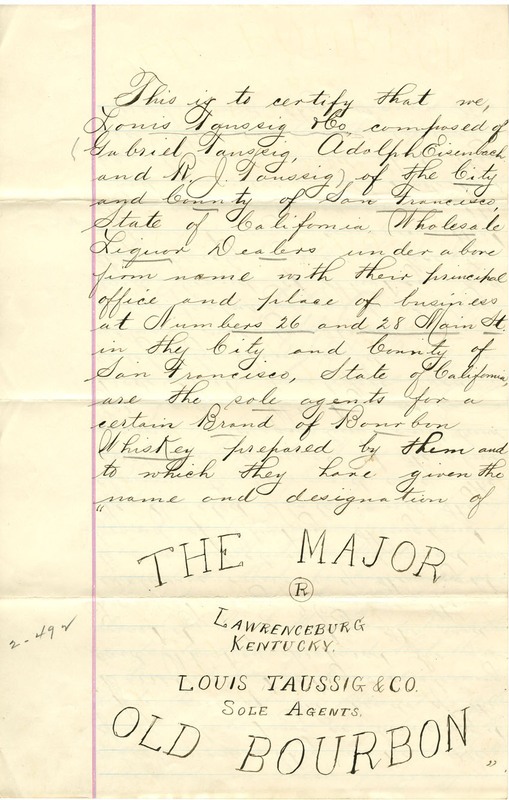 This is to certify that we,
Louis Taussig & Co, composed of
(Gabriel Taussig, Adolph Eisenbach
and R. J. Taussig) of the City
and County of San Francisco
State of California, Wholesale
Liquor Dealers under above
firm name with their principal
office and place of business
at Numbers 26 and 28 Main St.
in the City and County of
San Francisco, State of California,
are the sole agents for a
certain Brand of Bourbon
Whiskey prepared by them and
to which they have given the
name and designation of
"
THE MAJOR
R
LAWRENCEBURG
KENTUCKY.
LOUIS TAUSSIG & CO.
SOLE AGENTS.
OLD BOURBON
"